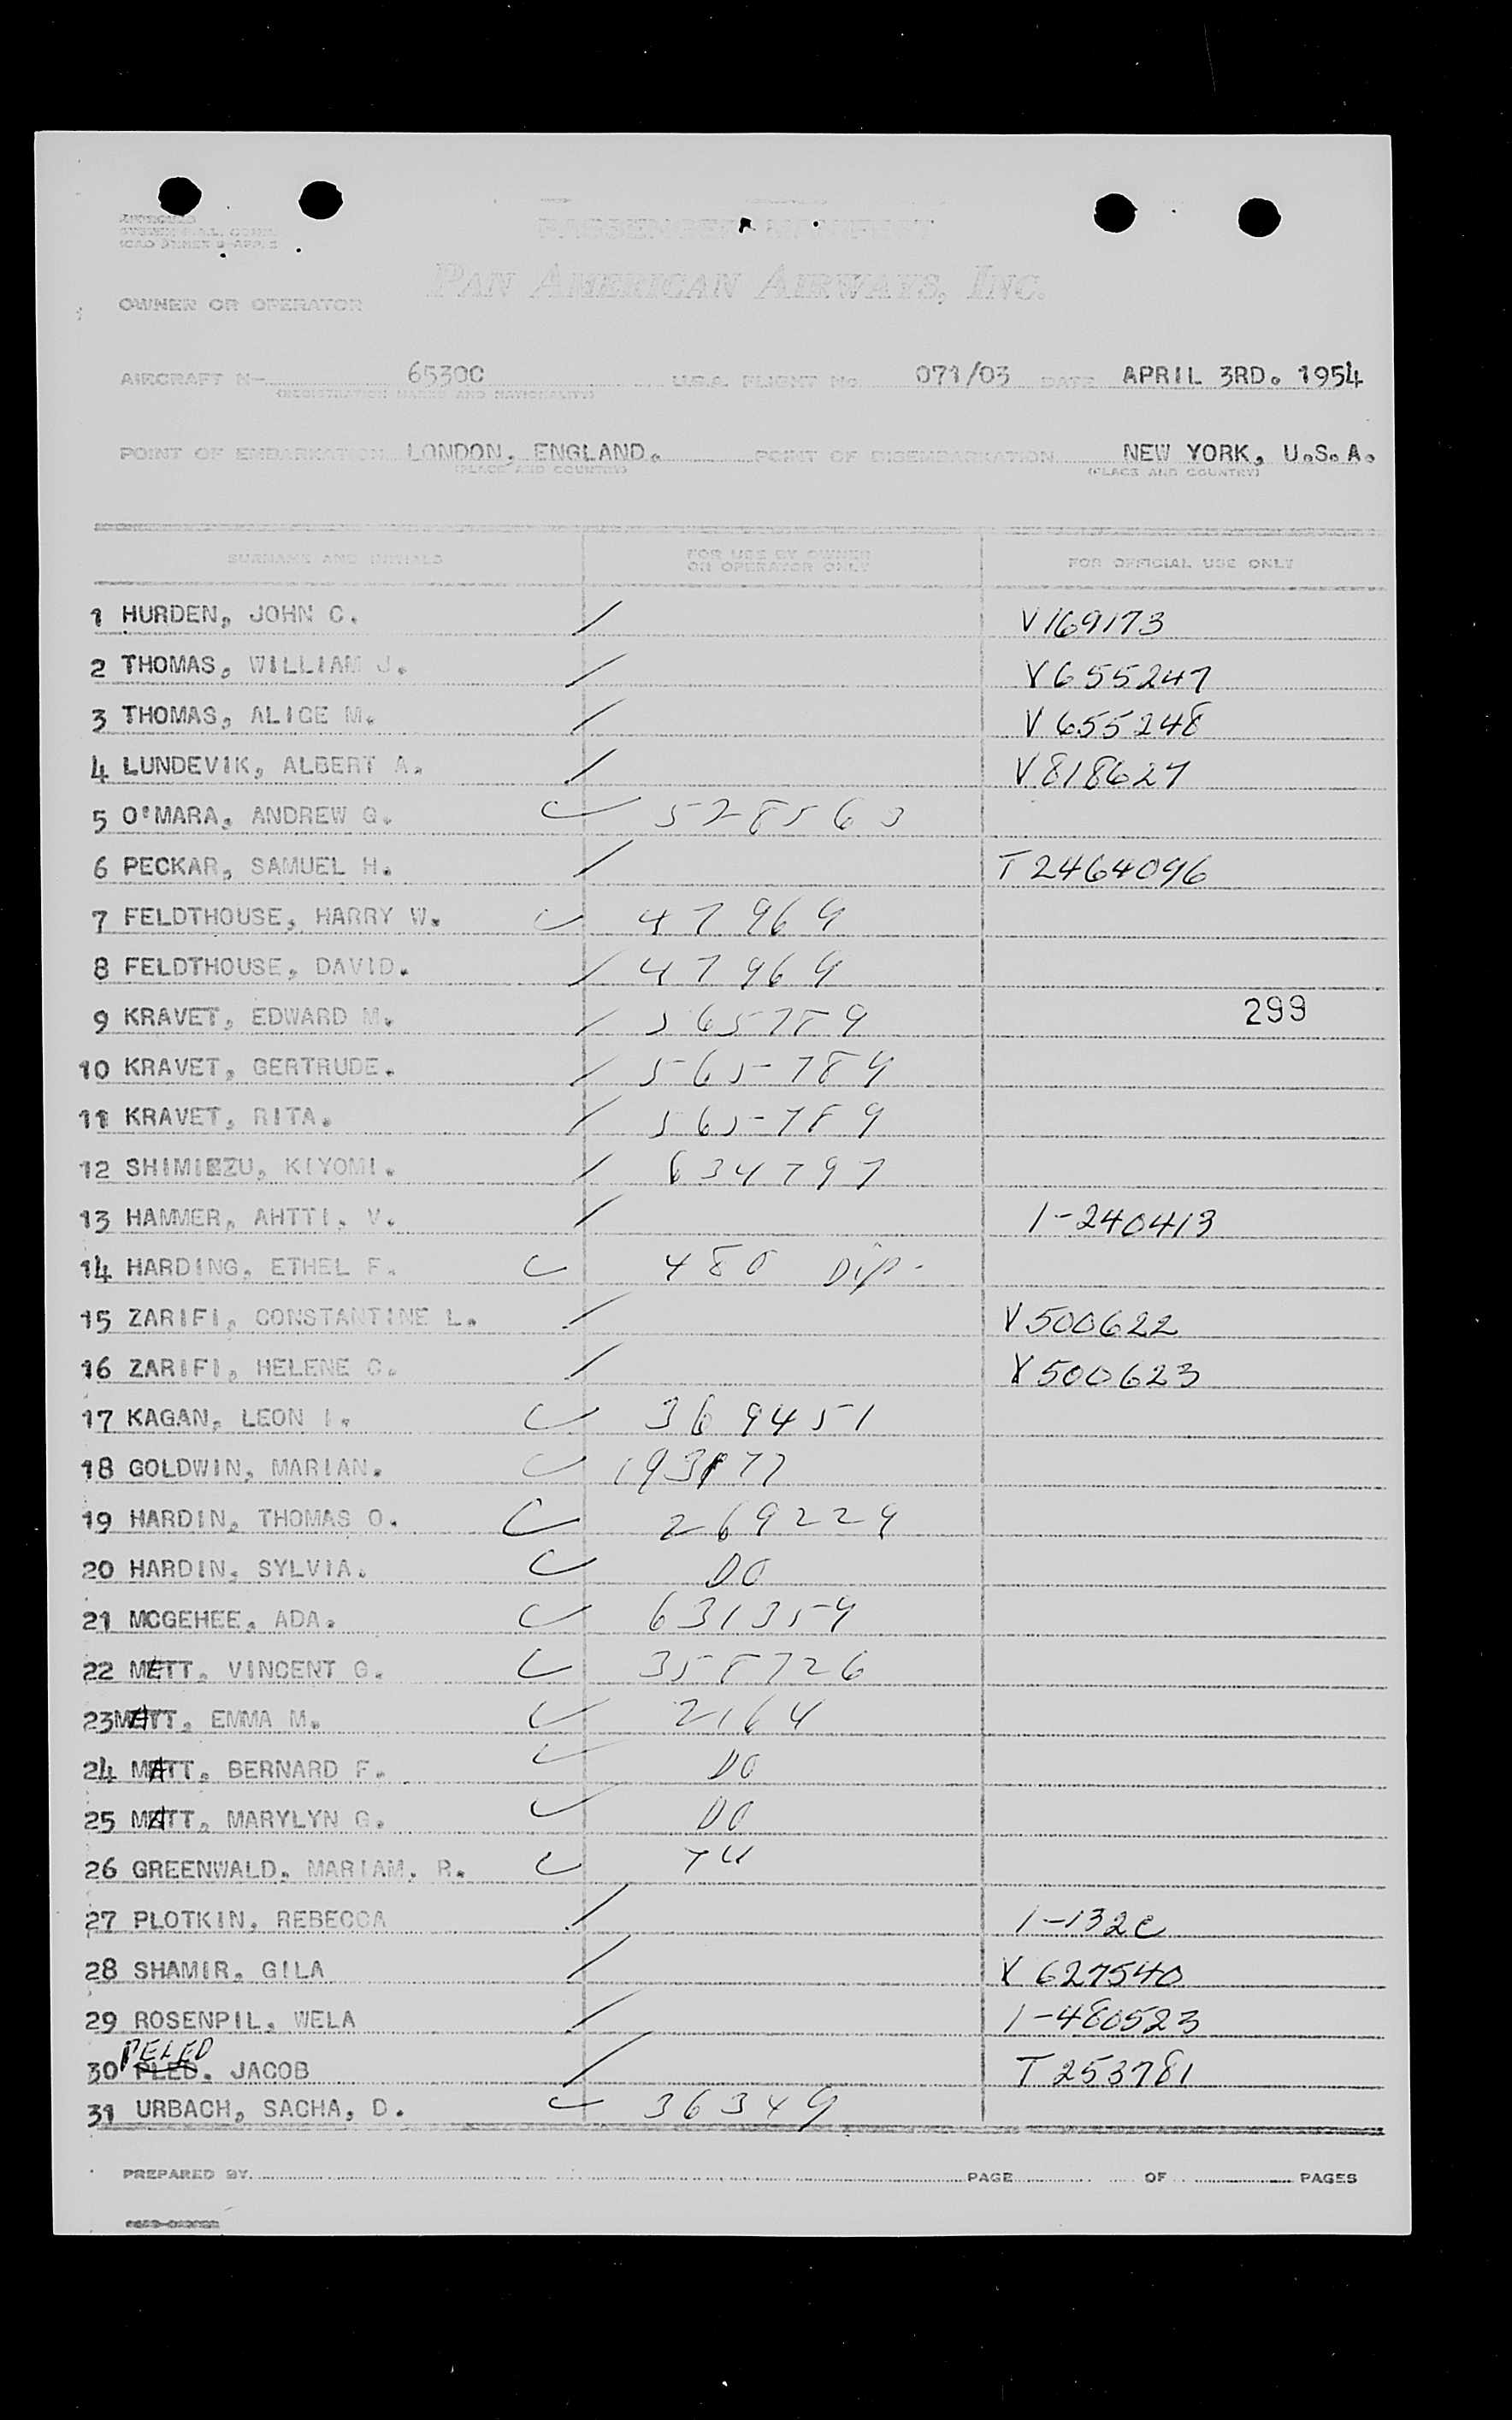 PASSENGER MANIFEST
PAN AMERICAN AIRWAYS, INC.
OWNER OR OPERATOR
AIRCRAFT N- 6530C U.S.A. FLIGHT No. 071/03 DATE APRIL 3RD. 1954
(REGISTRATION MARKS AND NATIONALITY)
POINT OF EMBARKATION LONDON, ENGLAND. POINT OF DISEMBARKATION NEW YORK, U.S.A.
(PLACE AND COUNTRY) (PLACE AND COUNTRY)
SURNAME AND INITIALS FOR USE BY OWNER OR OPERATOR ONLY FOR OFFICIAL USE ONLY
1 HURDEN, JOHN C. / V169173
2 THOMAS, WILLIAM J. / V655247
3 THOMAS, ALICE M. / V655248
4 LUNDEVIK, ALBERT A. / V818627
5 O'MARA, ANDREW G. 528563
6 PECKAR, SAMUEL H. / T2464096
7 FELDTHOUSE, HARRY W. 47969
8 FELDTHOUSE, DAVID. / 47969
299
9 KRAVET, EDWARD M. / 565789
10 KRAVET, GERTRUDE. / 565789
11 KRAVET, RITA. / 565789
12 SHIMIZZU, KIYOMI. / 634797
13 HAMMER, AHTTI, V. / 1-240413
14 HARDING, ETHEL F. 480 Dip-
15 ZARIFI, CONSTANTINE L. / V500622
16 ZARIFI, HELENE C. / V500623
17 KAGAN, LEON I. 369451
18 GOLDWIN, MARIAN.
19 HARDIN, THOMAS O. 269229
20 HARDIN, SYLVIA. DO
21 MCGEHEE, ADA. 631359
22 METT, VINCENT G. 358726
23 MATT, EMMA M. 2164
24 MATT, BERNARD F. DO
25 MATT, MARYLYN G. DO
26 GREENWALD, MARIAM, R.
27 PLOTKIN, REBECCA / 1-132
28 SHAMIR, GILA / V627540
29 ROSENPIL, WELA / 1-480523
PELED
30 PLED. JACOB / T253781
31 URBACH, SACHA, D. 36349
PREPARED BY PAGE OF PAGES